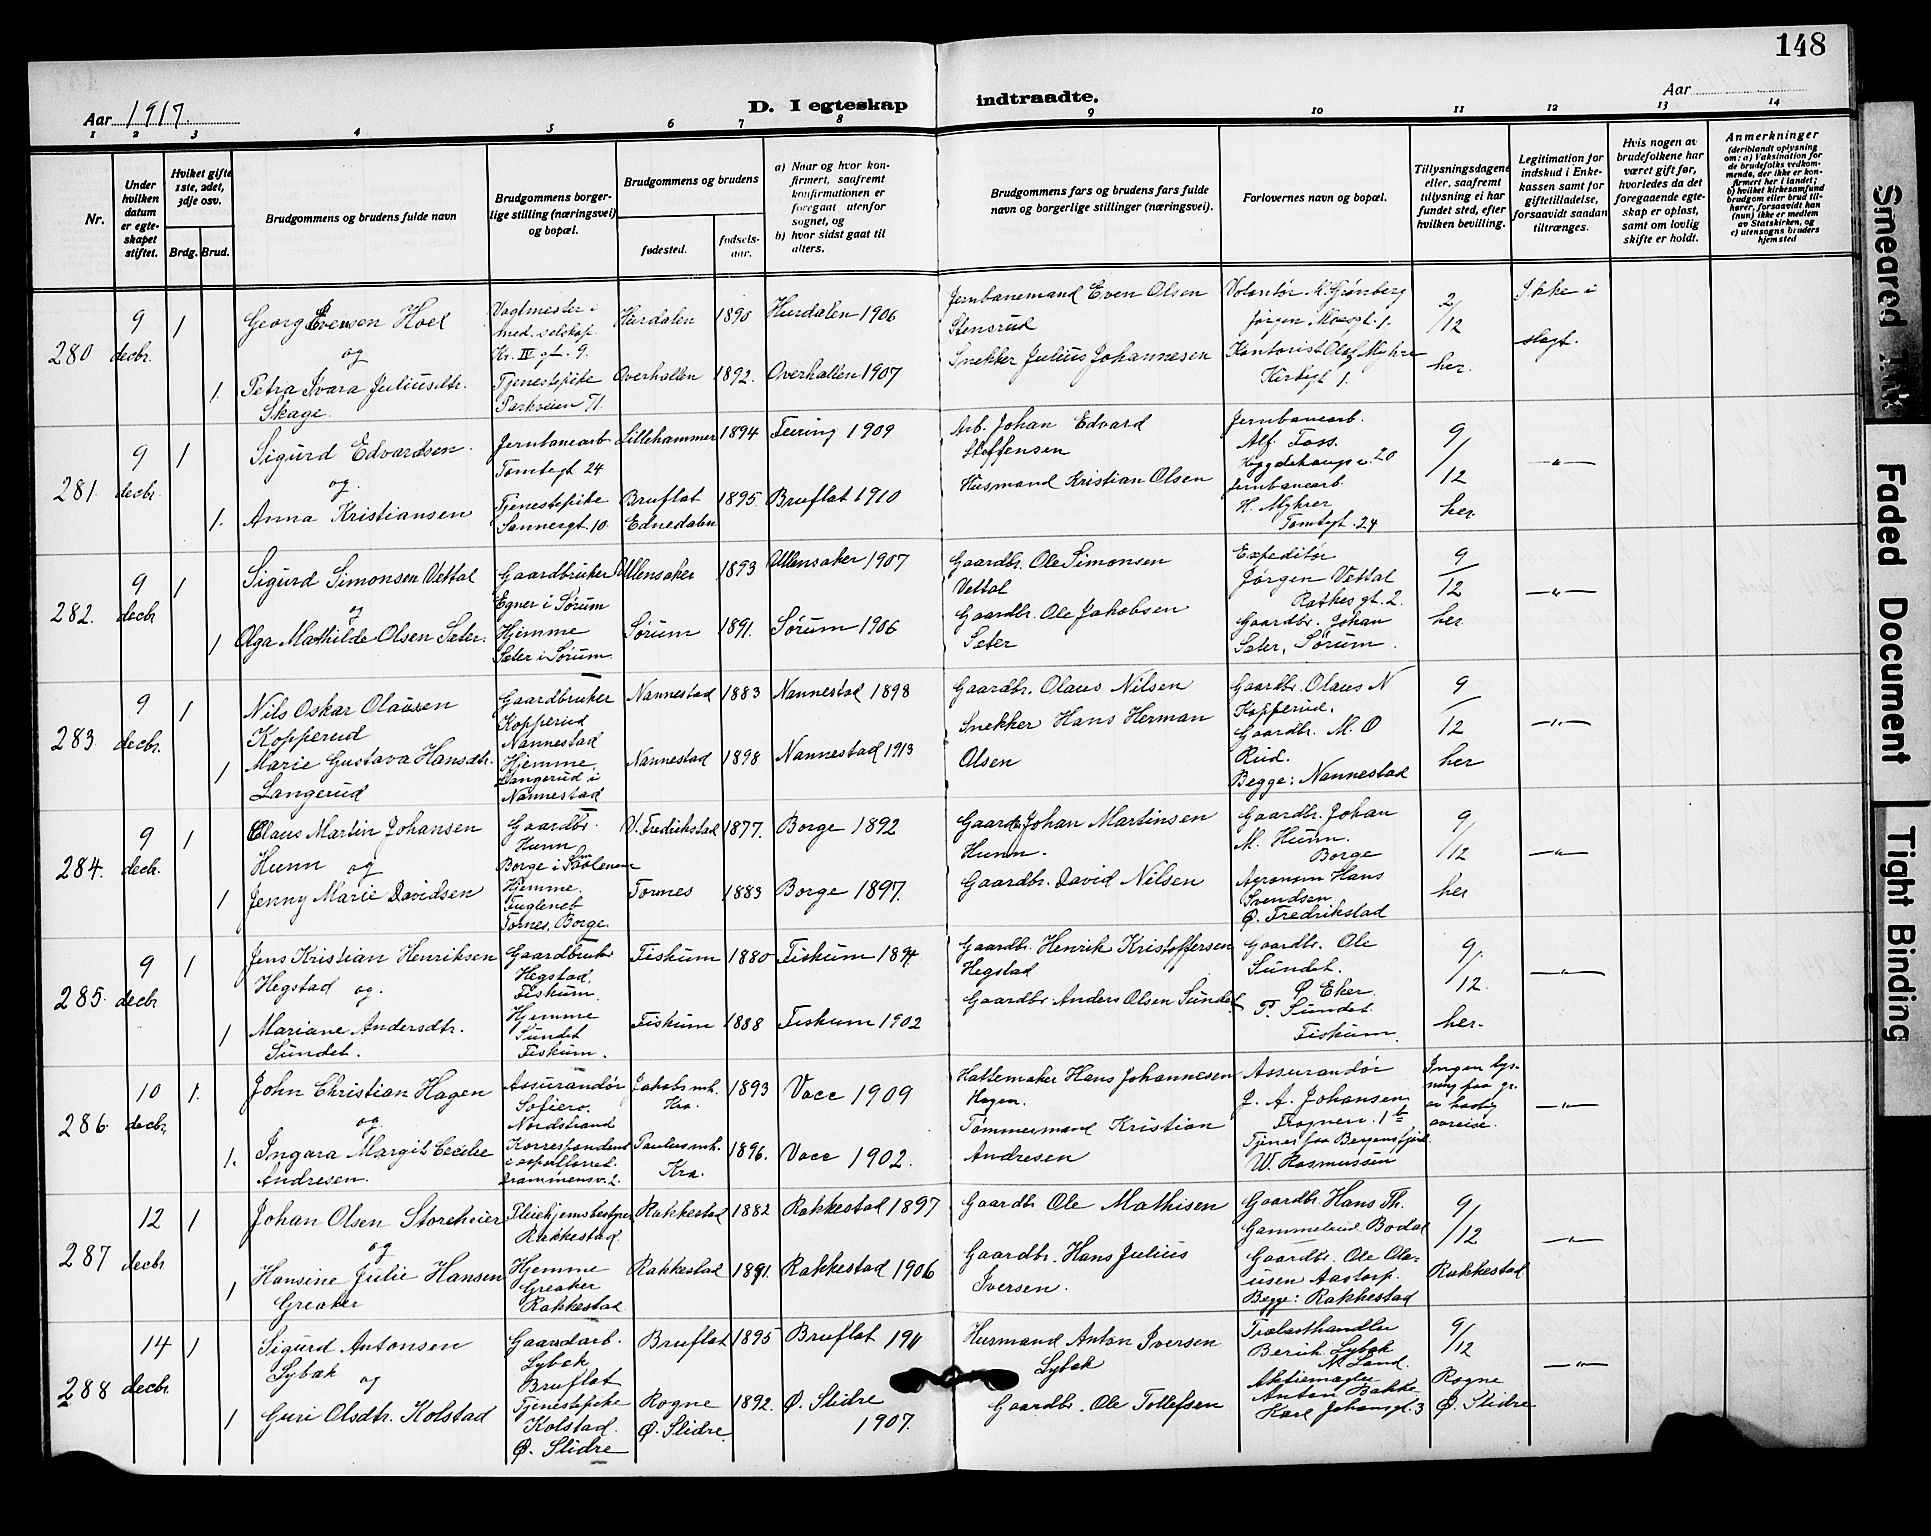 148
Aar 1917.
D. I egteskap indtraadte.
Aar
1 2 3 4 5 6 7 8 9 10 11 12 13 14
Nr.
Under hvilken datum er egteskapet stiftet.
Hviket gifte 1ste, 2det, 3dje osv.
Brdg. Brud.
Brudgommens og brudens fulde navn
Brudgommens borgerlige stilling (næringsvei) og bopæl.
Brudgommens og brudens
fødested.
fødselsaar.
a) Naar og hvor konfirmert, saafremt konfirmationen er foregaat utenfor sognet, og
b) hvor sidst gaat til alters.
Brudgommens fars og brudens fars fulde navn og borgerlige stillinger (næringsvei).
Forlovernes navn og bopæl.
Tillysningsdagene eller, saafremt tillysning ei har fundet sted, efter hvilken bevilling.
Legitimation for indskud i Enkekassen samt for giftetilladelse, forsaavidt saadan tiltrænges.
Hvis nogen av brudefolkene har været gift før, hvorledes da det foregaaende egteskap er opløst, samt om lovlig skifte er holdt.
Anmerkninger
(deriblandt oplysning om: a) Vaksination for de brudefolks vedkommende, der ikke er konfirmert her i landet; b) hvilket kirkesamfund brudgom eller brud tilhører, forsaavidt han (hun) ikke er medlem av Statskirken, og c) utensogns bruders hjemsted
280
9 decbr.
1
Georg Evensen Hoel
og
1.
Petra Ivara Juliusdtr.
Skage.
Vagtmester i
med. selskap
Kr. IV gt. 9.
Tjenestepike
Parkveien 71.
Hurdalen 1890 Hurdalen 1906
Overhallen 1892. Overhallen 1907
Jernbanemand Even Olsen
Stensrud
Snekker Julius Johannesen
Volontør M. Grønberg
Jørgen Moesgt. 1.
Kontorist Olaf Myhre
Kirkegt 1.
2/12
her.
Ikke i
slegt.
281.
9 decbr.
1
Sigurd Edvardsen.
og.
1.
Anna Kristiansen
Jernbanearb
Tomtegt 24
Tjenestepike
Sannergt. 10.
Lillehammer 1894 Feiring 1909
Bruflat 1895. Bruflat 1910
Ednedalen
Arb. Johan Edvard
Steffensen
Husmand Kristian Olsen
Jernbanearb.
Alf. Foss.
20
Jernbanearb
H. Myhrer
Tomtegt. 24
9/12
her.
-"-
282.
9 decbr
1
Sigurd Simonsen Vettal
og
1
Olga Mathilde Olsen Sæter.
Gaardbruker
Egner i Sørum
Hjemme
Sæter i Sørum.
Ullensaker 1893 Ullensaker 1907
Sørum 1891. Sørum 1906
Gaardbr. Ole Simonsen
Vettal
Gaardbr. Ole Jakobsen
Sæter
Expeditør
Jørgen Vettal
Rathkes gt. 2.
Gaardbr. Johan
Sæter, Sørum.
9/12
her
-"-
283
9 decbr.
1
Nils Oskar Olausen
Kopperud
1
Marie Gustava Hansdtr.
Langerud
Gaardbruker
Kopperud
Nannestad
Hjemme
Langerud i
Nannestad
Nannestad 1883 Nannestad 1898
Nannestad 1898 Nannestad 1913
Gaardbr. Olaus Nilsen
Snekker Hans Herman
Olsen
Gaardbr. Olaus N
Kopperud.
Gaardbr. M. O
Rud.
Begge: Nannestad
9/12
her
-"-
284.
9 decbr.
1
Claus Martin Johansen
Hunn og
1
Jenny Marie Davidsen
Gaardbr.
Hunn
Borge i Smaalenene
Hjemme.
Fugleneb
Tornes, Borge.
V. Fredrikstad 1877. Borge 1892
Tornes 1883 Borge 1897.
Gaardbr Johan Martinsen
Hunn.
Gaardbr. David Nilsen
Gaardbr. Johan
M. Hunn.
Borge
Agronom Hans
Svendsen
Ø. Fredrikstad
9/12
her
-"-
285.
9 decbr
1
Jens Kristian Henriksen
Hegstad og.
1
Mariane Andersdtr.
Sundet.
Gaardbruker
Hegstad.
Fiskum.
Hjemme
Sundet
Fiskum.
Fiskum 1880 Fiskum 1894
Fiskum 1888 Fiskum 1902
Gaardbr. Henrik Kristoffersen
Hegstad
Gaardbr Anders Olsen Sundet
Gaardbr. Ole
Sundet.
Ø Eker.
P. Sundet.
Fiskum.
9/12.
her.
-"-
286.
10 decbr.
1.
John Christian Hagen
og
1.
Ingara Margit Cecilie
Andresen.
Assurandør
Sofiero.
Nordstrand
Korrespondent
Drammensv. 2.
Jakobs mh. 1893 Vacc 1909
Kra.
Paulus mh. 1896. Vacc 1902.
Kra.
Hattemaker Hans Johannesen
Hagen.
Tømmermand Kristian
Andresen
Assurandør
J. A. Johansen
Frognerv. 1 b
Tjener paa Bergensfjord
W. Rasmussen
Ingen lysning paa gr.
av hastig
avreise.
-"-
287
12 decbr
1
Johan Olsen Storeheier
og
1
Hansine Julie Hansen
Greaker
Pleiehjemsbestyrer
Rakkestad.
Hjemme
Greaker
Rakkestad
Rakkestad 1882 Rakkestad 1897
Rakkestad 1891. Rakkestad 1906
Gaardbr Ole Mathisen
Gaardbr. Hans Julius
Iversen.
Gaardbr. Hans Th.
Gammelrud Bodal
Gaardbr. Ole Olausen Aastorp.
Begge: Rakkestad
9/12
Rakkestad
-"-
288
14 decbr.
1
Sigurd Antonsen
Lybæk
og
1
Guri Olsdtr. Kolstad
Gaardarb.
Lybæk
Bruflat
Tjenestepike
Kolstad.
Ø. Slidre
Bruflat 1895 Bruflat 1911
Rogne 1892. Ø. Slidre
Ø. Slidre. 1907.
Husmand Anton Iversen
Lybæk
Gaardbr. Ole Tollefsen
Trælasthandler
Berich Lybæk
N. Land.
Aktiemægler
Anton Bakke
Karl Johansgt. 3
9/12
Rogne
Ø. Slidre
-"-
Smeared Ink
Faded Document
Tight Binding